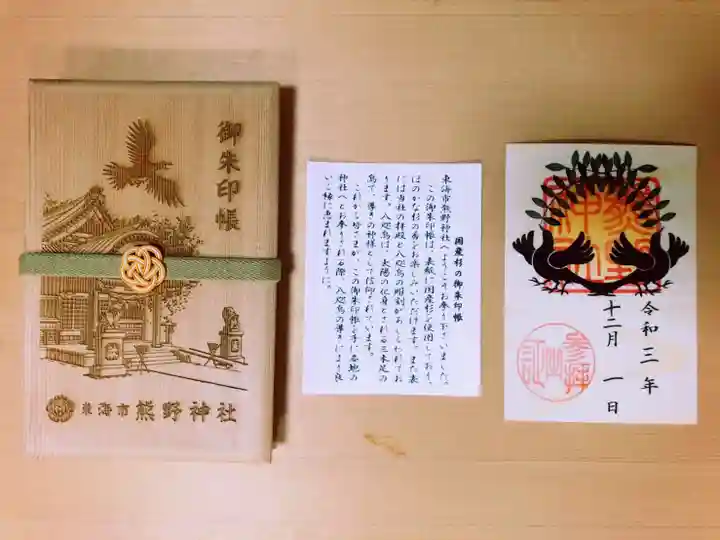 御朱印帳
東海市 熊野神社
国産杉の御朱印帳
東海市熊野神社へようこそお参り下さいました。
この御朱印帳は、表紙に国産杉を使用しており、
ほのかな杉の香をお楽しみいただけます。また表
には当社の拝殿と八咫烏の彫刻があしらわれてお
ります。八咫烏は、太陽の化身とされる三本足の
烏で、導きの神様として信仰されています。
これから皆さまが、この御朱印帳を手に各地の
神社へとお参りされる際、八咫烏の導きにより良
いご縁に恵まれますように。
令和三年
十二月 一日
参拝